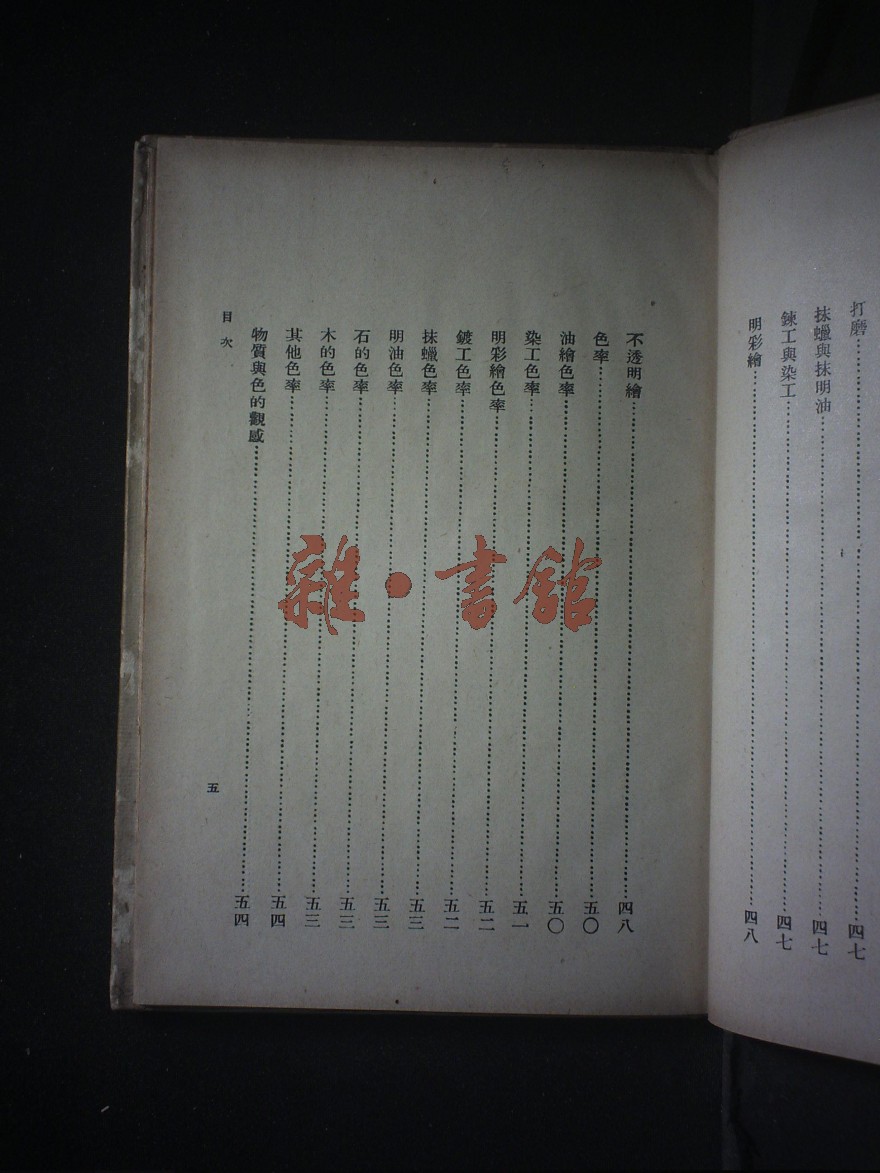 打磨……四七
抹蠟與抹明油……四七
鍊工與染工……四七
明彩繪……四八
不透明繪……四八
色率……五〇
油繪色率……五〇
染工色率……五一
明彩繪色率……五二
鍍工色率……五二
抹蠟色率……五三
明油色率……五三
石的色率……五三
木的色率……五三
其他色率……五四
物質與色的觀感……五四
目次
五
雜·書館